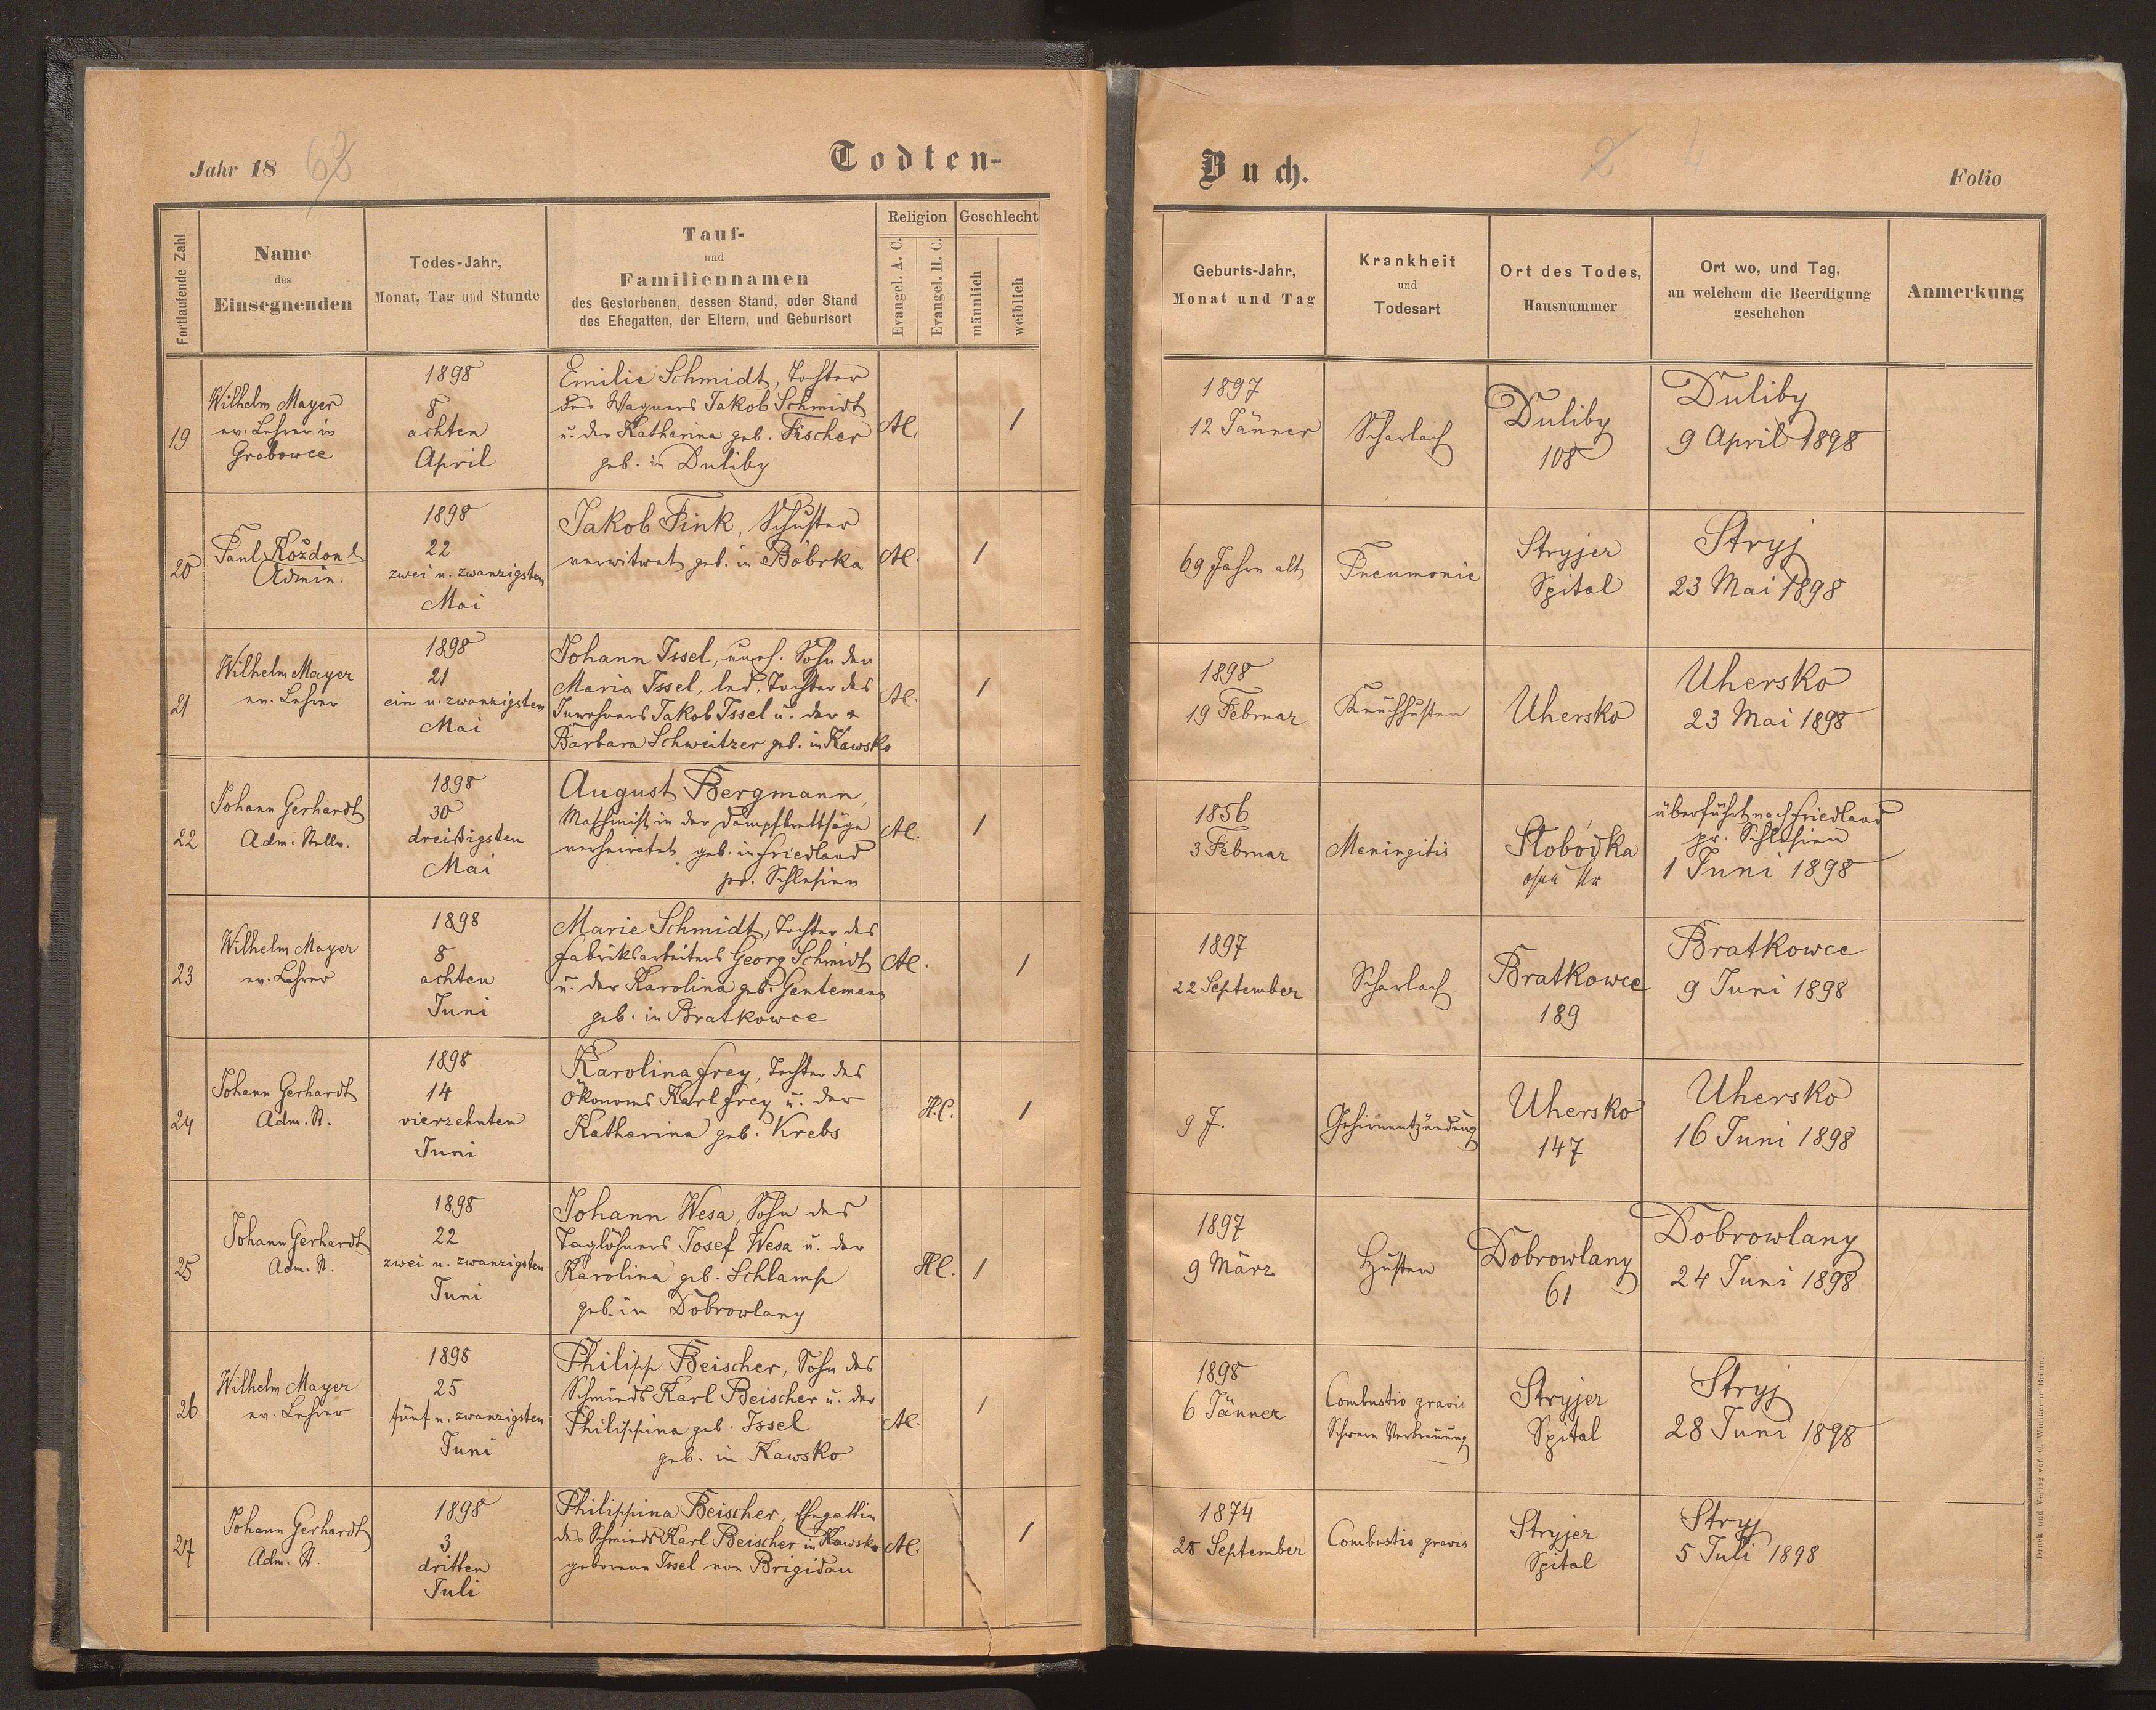 Jahr 18 63
Todten-
Buch.
2
Folio
Fortlaufende Zahl
Name
des
Einsegnenden
Todes-Jahr,
Monat, Tag und Stunde
Tauf-
und
Familiennamen
des Gestorbenen, dessen Stand, oder Stand
des Ehegatten, der Eltern, und Geburtsort
Religion
Evangel. A. C.
Evangel. H. C.
Geschlecht
männlich
weiblich
Geburts-Jahr,
Monat und Tag
Krankheit
und
Todesart
Ort des Todes,
Hausnummer
Ort wo, und Tag,
an welchem die Beerdigung
geschehen
Anmerkung
19
Wilhelm Mayer
ev. Lehrer in
Grabowce
1898
8
achten
April
Emilie Schmidt, Tochter
des Wagners Jakob Schmidt
u. der Katharina geb. Fischer
geb. in Duliby
AC.
1
1897
12 Jänner
Scharlach
Duliby
108
Duliby
9 April 1898
20
Paul Kożdon
Admin.
1898
22
zwei u. zwanzigsten
Mai
Jakob Fink, Schuster
verwitwet geb. in Bóbrka
AC.
1
69 Jahre alt
Pneumonie
Stryjer
Spital
Stryj
23 Mai 1898
21
Wilhelm Mayer
ev. Lehrer
1898
21
ein u. zwanzigsten
Mai
Johann Issel, uneh. Sohn der
Maria Issel, led. Tochter des
Inwohners Jakob Issel u. der
Barbara Schweitzer geb. in Kawsko
AC.
1
1898
19 Februar
Keuchhusten
Uhersko
Uhersko
23 Mai 1898
22
Johann Gerhardt
Adm. Stellv.
1898
30
dreißigsten
Mai
August Bergmann,
Maschinist in der Dampfbrettsäge
verheiratet geb. in Friedland
pr. Schlesien
AC.
1
1856
3 Februar
Meningitis
Slobódka
ohne Nr
überführt nach Friedland
pr. Schlesien
1 Juni 1898
23
Wilhelm Mayer
ev. Lehrer
1898
8
achten
Juni
Marie Schmidt, Tochter des
Fabriksarbeiters Georg Schmidt
u. der Karolina geb. Gentemann
geb. in Bratkowce
AC.
1
1897
22 September
Scharlach
Bratkowce
189
Bratkowce
9 Juni 1898
24
Johann Gerhardt
Adm. St.
1898
14
vierzehnten
Juni
Karolina Frey, Tochter des
Ökonoms Karl Frey u. der
Katharina geb. Krebs
H.C.
1
9 J.
Gehirnentzündung
Uhersko
147
Uhersko
16 Juni 1898
25
Johann Gerhardt
Adm. St.
1898
22
zwei u. zwanzigsten
Juni
Johann Wesa, Sohn des
Taglöhners Josef Wesa u. der
Karolina geb. Schlamp
geb. in Dobrowlany
HC.
1
1897
9 März
Husten
Dobrowlany
61
Dobrowlany
24 Juni 1898
26
Wilhelm Mayer
ev. Lehrer
1898
25
fünf u. zwanzigsten
Juni
Philipp Beischer, Sohn des
Schmieds Karl Beischer u. der
Philippina geb. Issel
geb. in Kawsko
AC.
1
1898
6 Jänner
Combustio gravis
Schwere Verbrennung
Stryjer
Spital
Stryj
28 Juni 1898
27
Johann Gerhardt
Adm. St.
1898
3
dritten
Juli
Philippina Beischer, Ehegattin
des Schmieds Karl Beischer in Kawsko
geborene Issel von Brigidau
AC.
1
1874
28 September
Combustio gravis
Stryjer
Spital
Stryj
5 Juli 1898
Druck und Verlag von C. Winiker in Brünn.